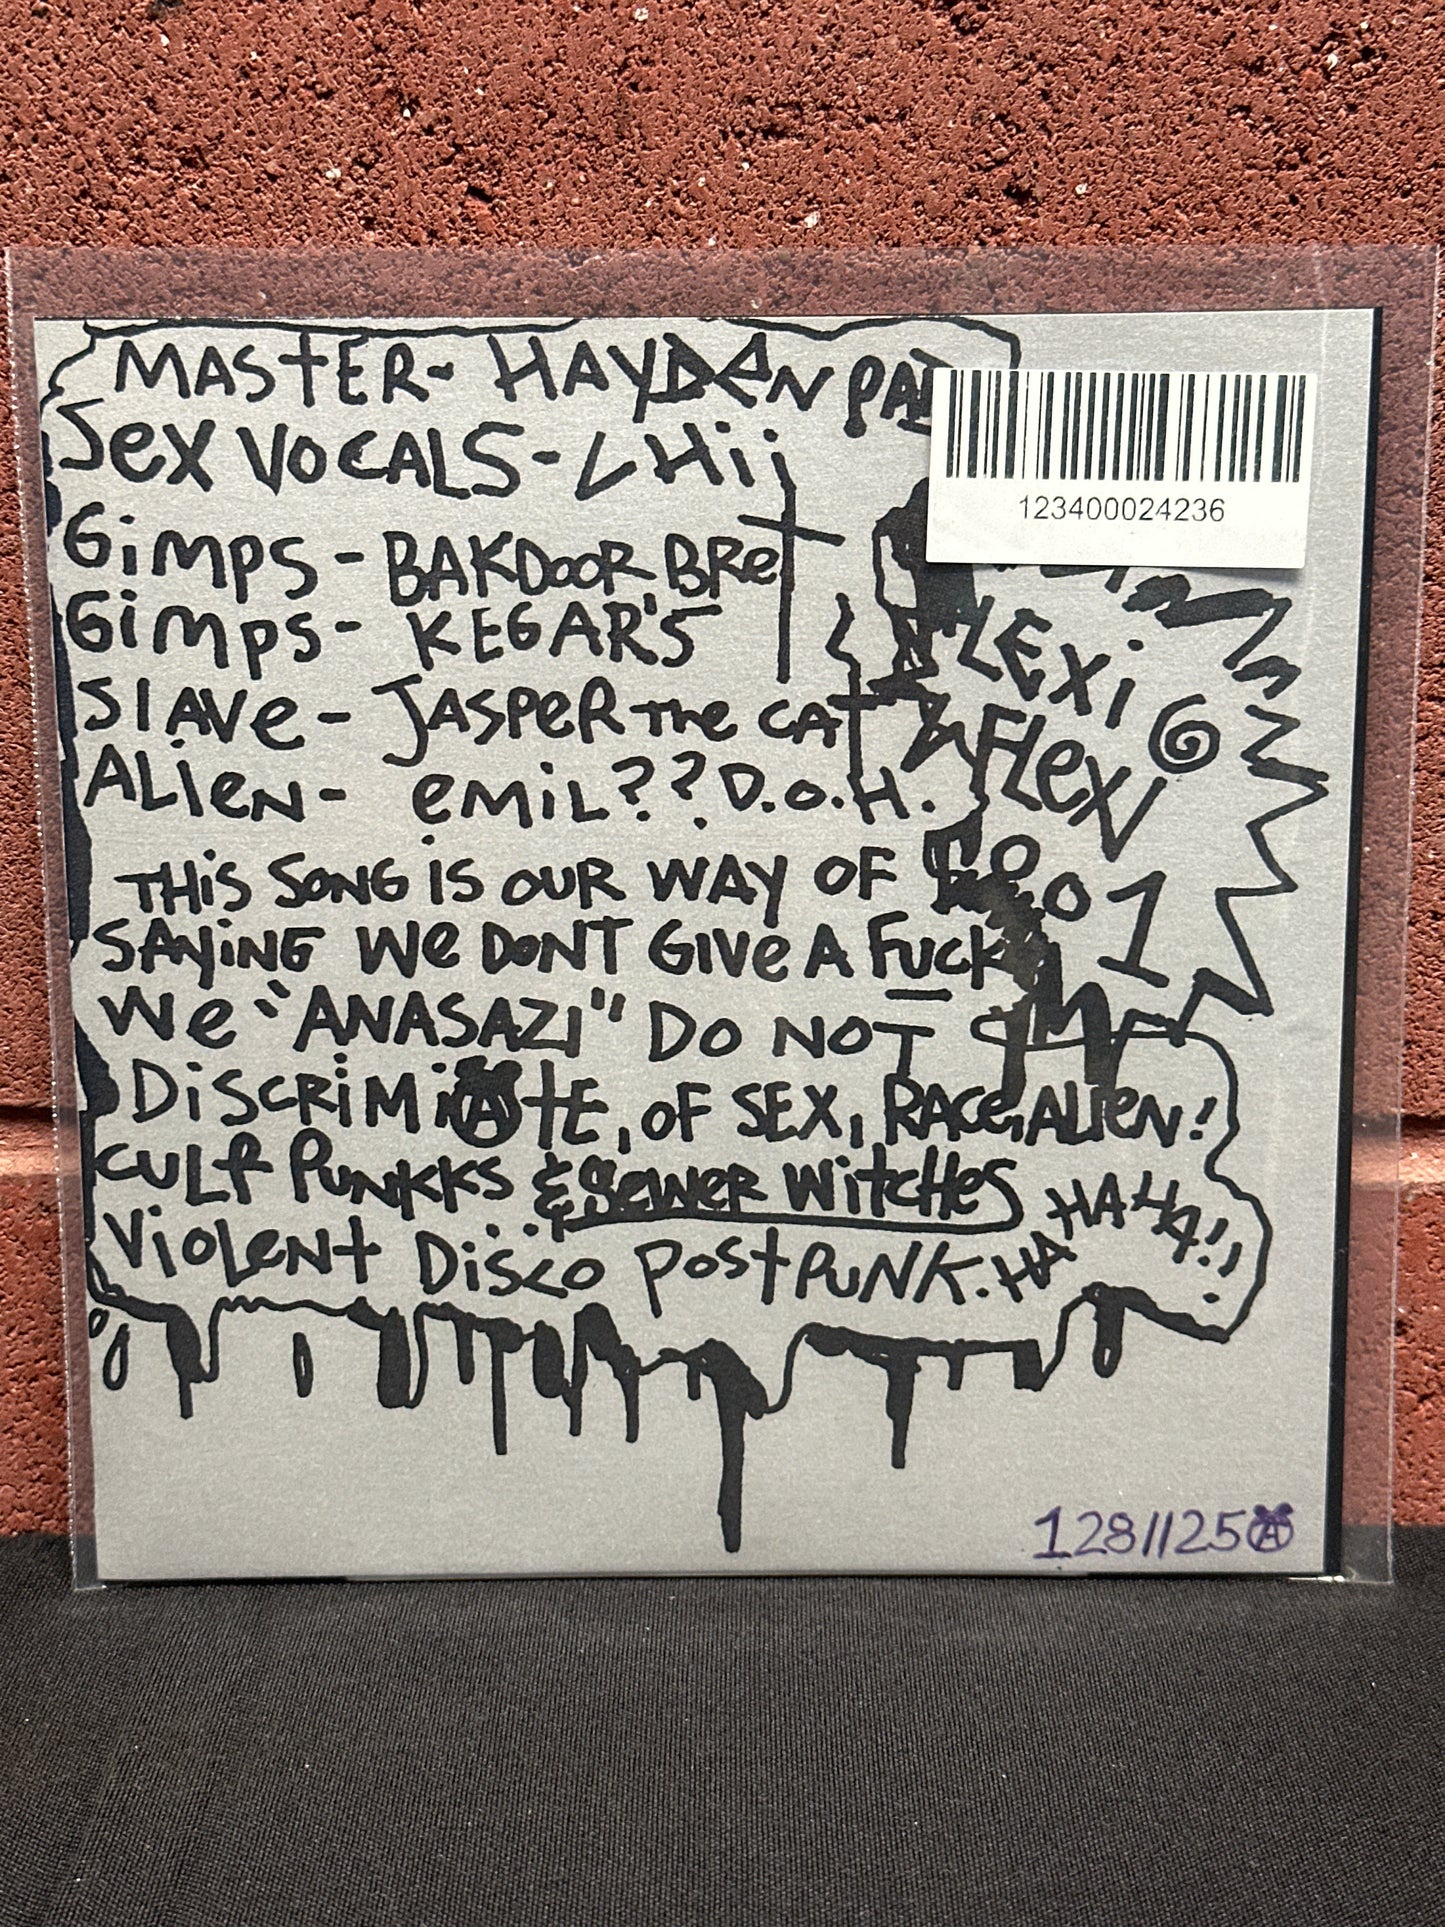 MASTER- HAYDEN
SEX VOCALS-CHi
GiMPS - BAKDOOR BRET
GiMPS- KEGAR'S
SlAVe- JASPER The CAT
ALieN- eMiL?? D.O.H.
123400024236
FLEXi
FLEXi
001
THiS SONG iS OUR WAY OF
SAYiNG We DONT GIVe A FUCK
We "ANASAZI" DO NOT
DiSCRiMiATE, OF SEX, RACe, ALieN!
CULT PUNKKS & SeWeR WiTCHeS
VioLeNt DiSCO PostPUNK. HA HA HA!!
128//250